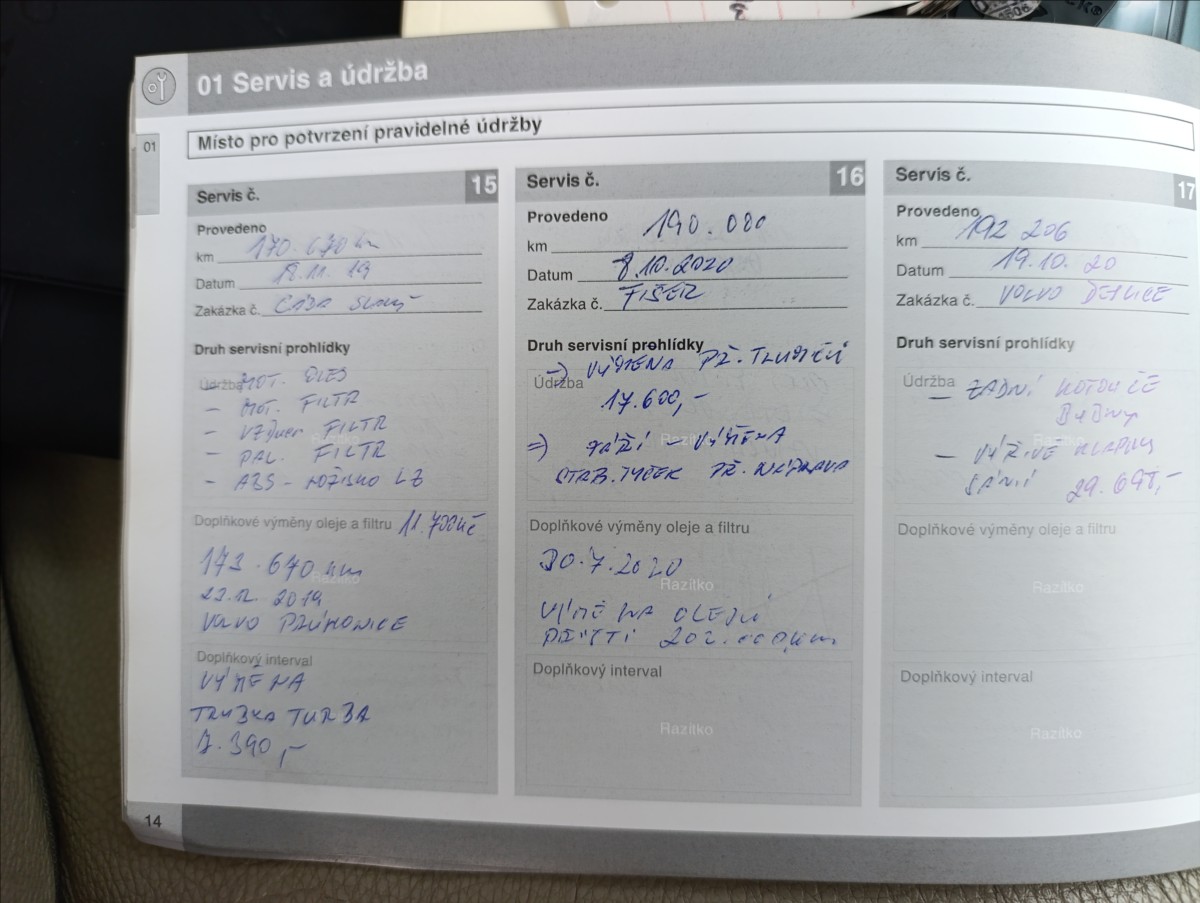 01 Servis a údržba
01
Místo pro potvrzení pravidelné údržby
Servis č. 15
Provedeno
km 170.670 km
Datum 18.11. 19
Zakázka č.
Druh servisní prohlídky
Údržba MOT. OLEJ
– MOT. FILTR
– VZDUCH FILTR
– PAL. FILTR
– ABS – LOŽISKO LZ
Doplňkové výměny oleje a filtru 11.700 Kč
173.670 km
Razítko
23.12. 2019
VOLVO PRŮHONICE
Doplňkový interval
VÝMĚNA
TRUBKA TURBA
7.390,–
14
Servis č. 16
Provedeno
km 190.000
Datum 8.10.2020
Zakázka č. FIŠER
Druh servisní prohlídky
=> VÝMĚNA PŘ. TLUMIČŮ
Údržba
17.600,–
=> ZÁŘÍ – VÝMĚNA
STAB. TYČEK PŘ. NÁPRAVA
Doplňkové výměny oleje a filtru
30.7.2020
Razítko
VÝMĚNA OLEJŮ
PŘÍŠTÍ 202.000 km
Doplňkový interval
Razítko
Servis č. 17
Provedeno
km 192 206
Datum 19.10. 20
Zakázka č. VOLVO
Druh servisní prohlídky
Údržba
– ZADNÍ KOTOUČE
BUBNY
– VÍŘIVÉ KLAPKY
SÁNÍ 29.697,–
Doplňkové výměny oleje a filtru
Razítko
Doplňkový interval
Razítko